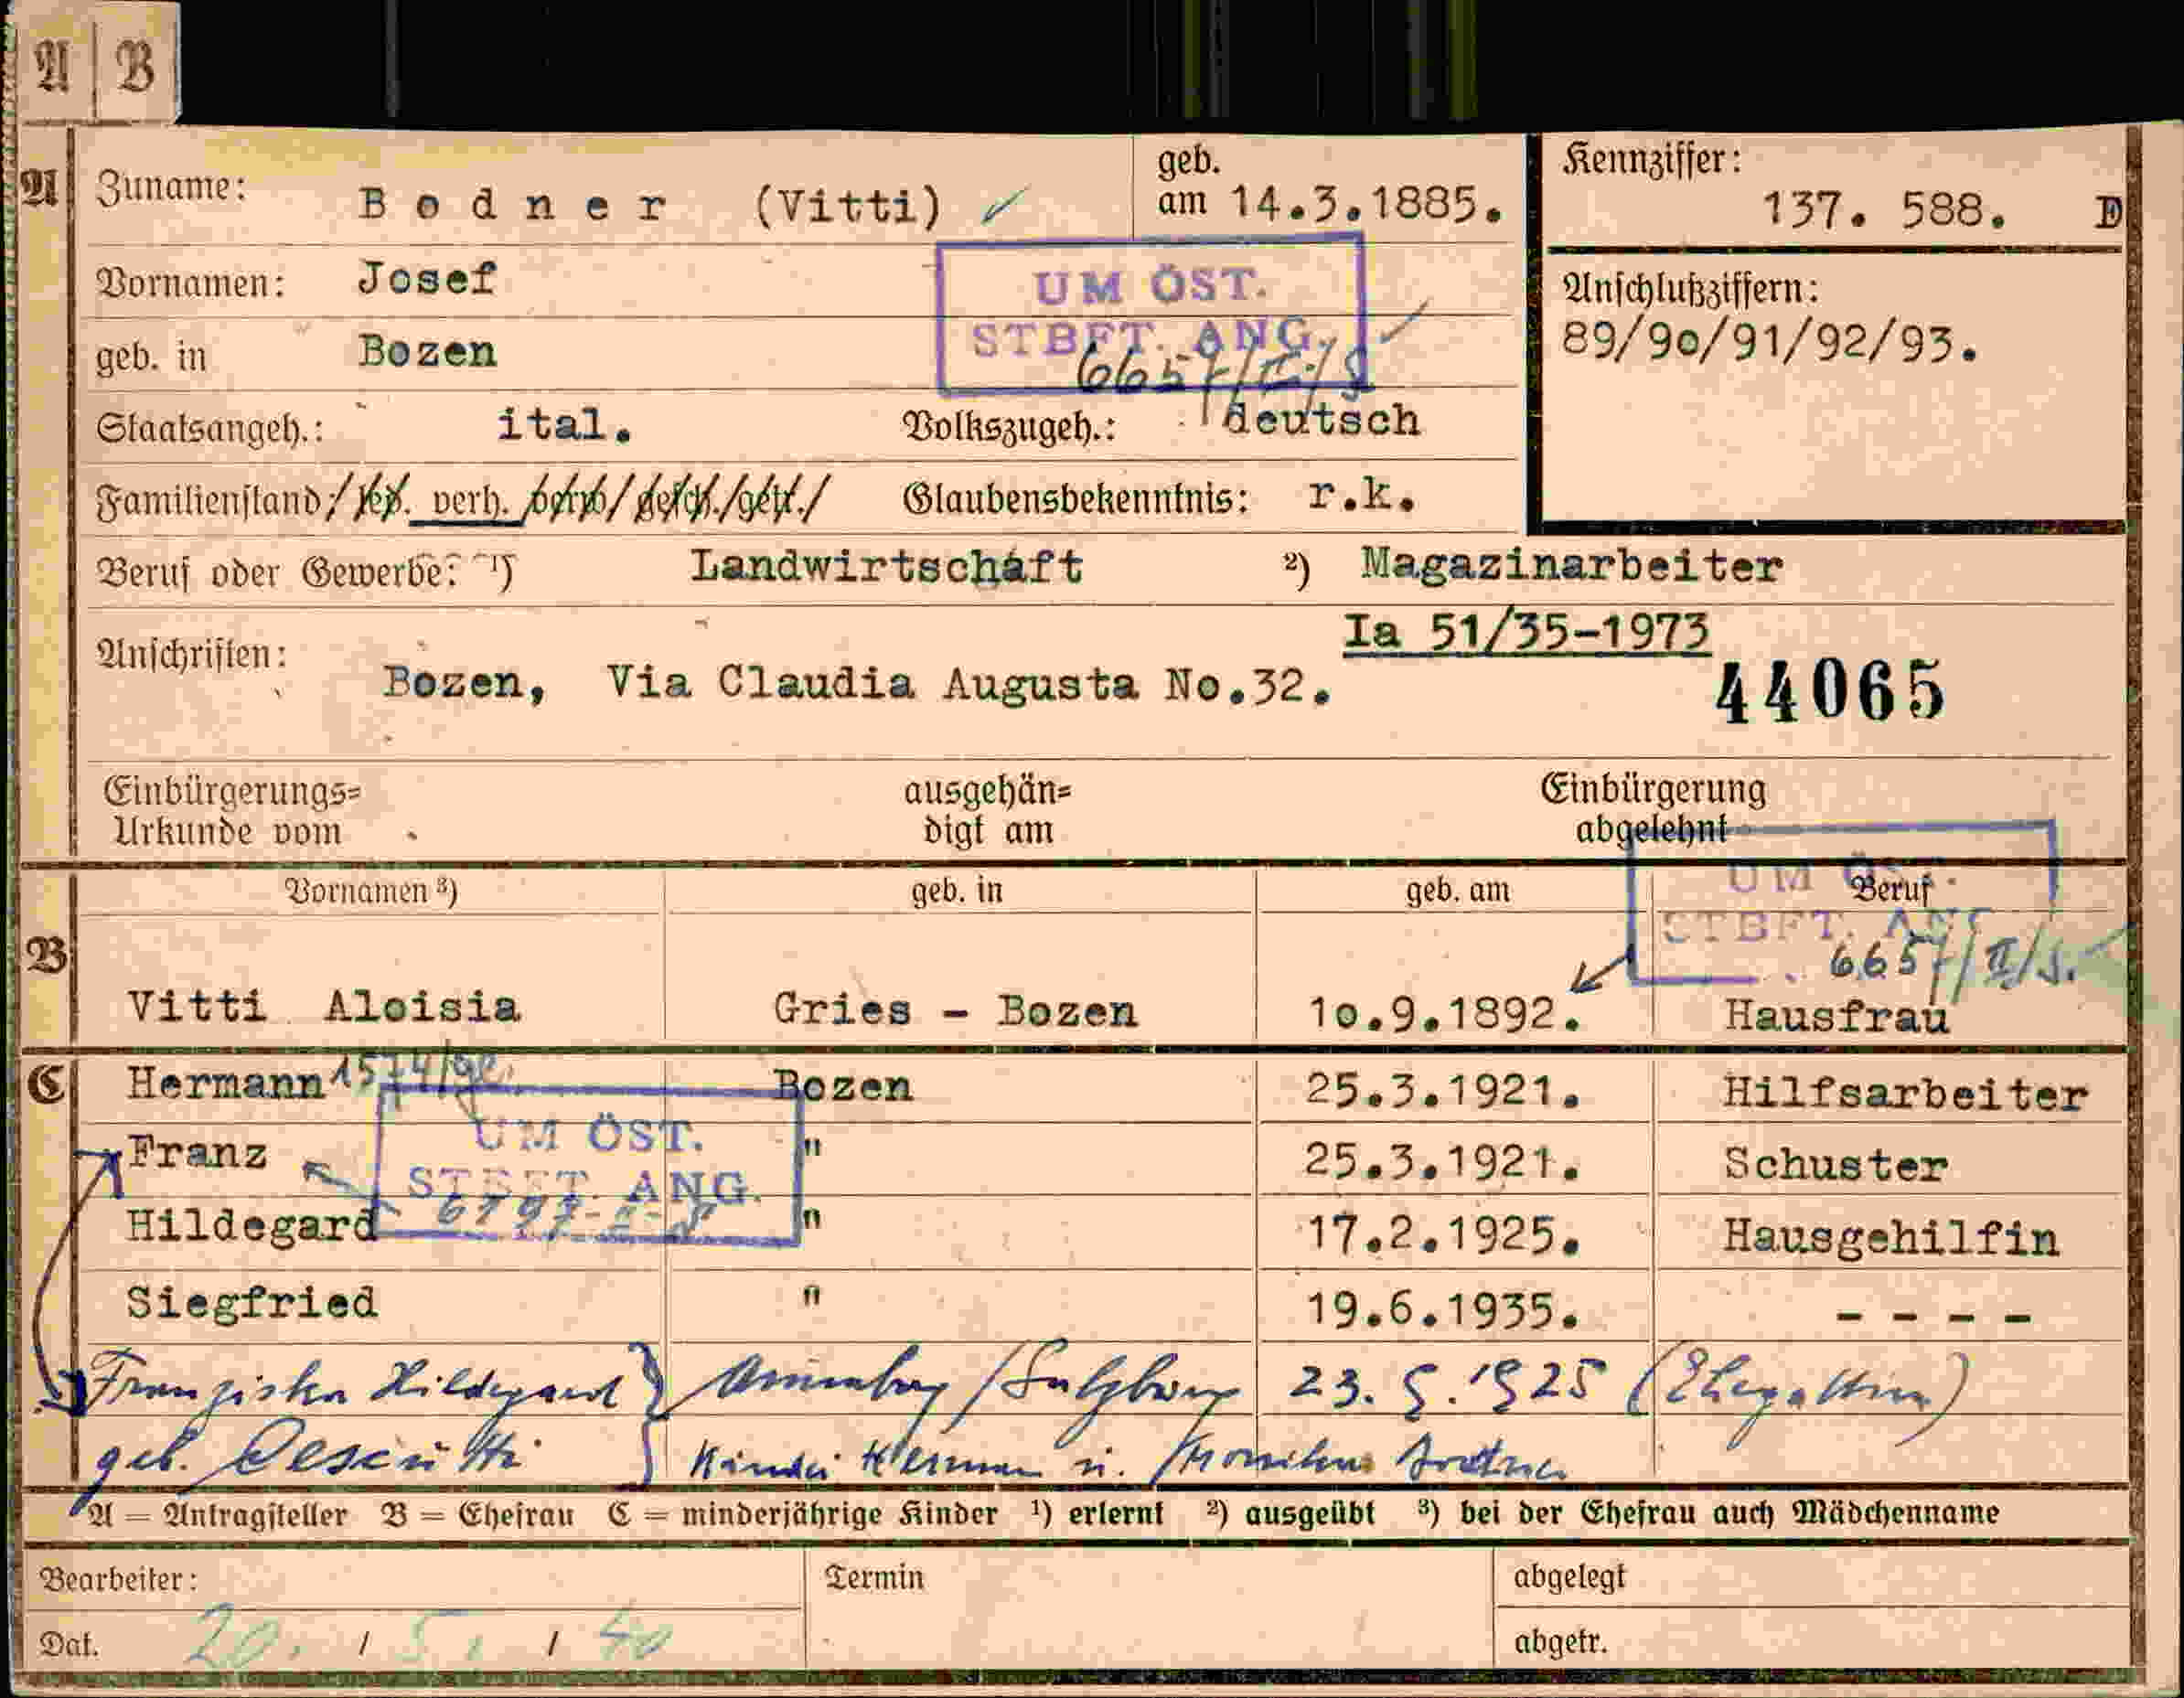 A B
A Zuname: Bodner (Vitti) geb. am 14.3.1885. Kennziffer: 137. 588. D
Vornamen: Josef UM ÖST. Anschlußziffern:
geb. in Bozen STBFT. ANG. 6657/II/S 89/90/91/92/93.
Staatsangeh.: ital. Volkszugeh.: deutsch
Familienstand: led. verh. verw. gesch. getr. Glaubensbekenntnis: r.k.
Beruf oder Gewerbe: 1) Landwirtschaft 2) Magazinarbeiter
Ia 51/35-1973
Anschriften: Bozen, Via Claudia Augusta No.32. 44065
Einbürgerungs= ausgehän= Einbürgerung
Urkunde vom digt am abgelehnt
Vornamen 3) geb. in geb. am Beruf
UM ÖST.
STBFT. ANG
6657/II/S.
B Vitti Aloisia Gries - Bozen 10.9.1892. Hausfrau
C Hermann Bozen 25.3.1921. Hilfsarbeiter
UM ÖST.
Franz " 25.3.1921. Schuster
STBFT. ANG.
Hildegard " 17.2.1925. Hausgehilfin
Siegfried " 19.6.1935. - - - -
Franziska Hildegard /Salzburg 23. 5. 1925 (Ehegattin)
geb. Kinder Herman u.
A = Antragsteller B = Ehefrau C = minderjährige Kinder 1) erlernt 2) ausgeübt 3) bei der Ehefrau auch Mädchenname
Bearbeiter: Termin abgelegt
Dat. 20. / 5. / 40 abgetr.